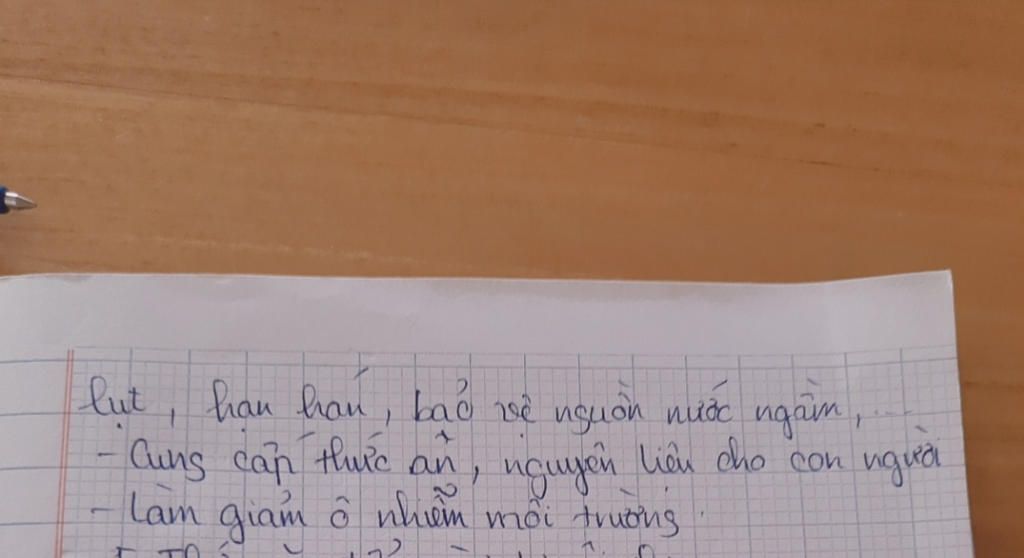 lụt, hạn hán, bảo vệ nguồn nước ngầm, ...
- Cung cấp thức ăn, nguyên liệu cho con người
- Làm giảm ô nhiễm môi trường.